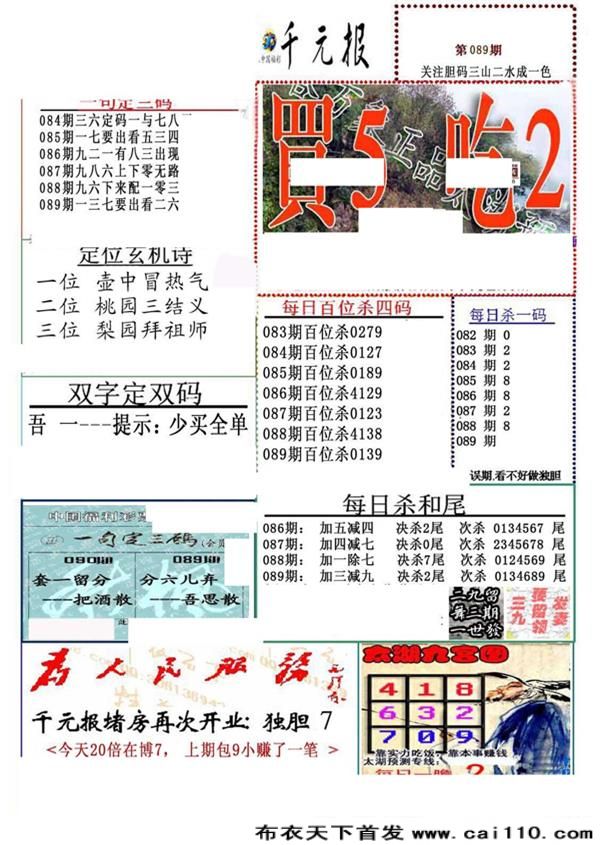 千元报
第089期
关注胆码三山二水成一色
一句定三码
084期三六定码一与七八
085期一七要出看五三四
086期九二一有八三出现
087期九八六上下零无路
088期九六下来配一零三
089期一三七要出看二六
買5 吃2
定位玄机诗
一位 壶中冒热气
二位 桃园三结义
三位 梨园拜祖师
每日百位杀四码
083期百位杀0279
084期百位杀0127
085期百位杀0189
086期百位杀4129
087期百位杀0123
088期百位杀4138
089期百位杀0139
每日杀一码
082 期 0
083 期 2
084 期 2
085 期 8
086 期 8
087 期 2
088 期 8
089 期
误期,看不好做独胆
双字定双码
吾 一---提示: 少买全单
每日杀和尾
086期: 加五减四 决杀2尾 次杀 0134567 尾
087期: 加四减七 决杀0尾 次杀 2345678 尾
088期: 加一除七 决杀7尾 次杀 0124569 尾
089期: 加三减九 决杀2尾 次杀 0134689 尾
中国福利彩票
一句定三码
090期 089期
套一留分 分六儿弃
---把酒散 ---吾思散
为人民服务
千元报堵房再次开业: 独胆 7
<今天20倍在博7, 上期包9小赚了一笔 >
太湖九宫图
4 1 8
6 3 2
7 0 9
靠实力吃饭,靠本事赚钱
太湖预测专线:
布衣天下首发 - www.cai110.com